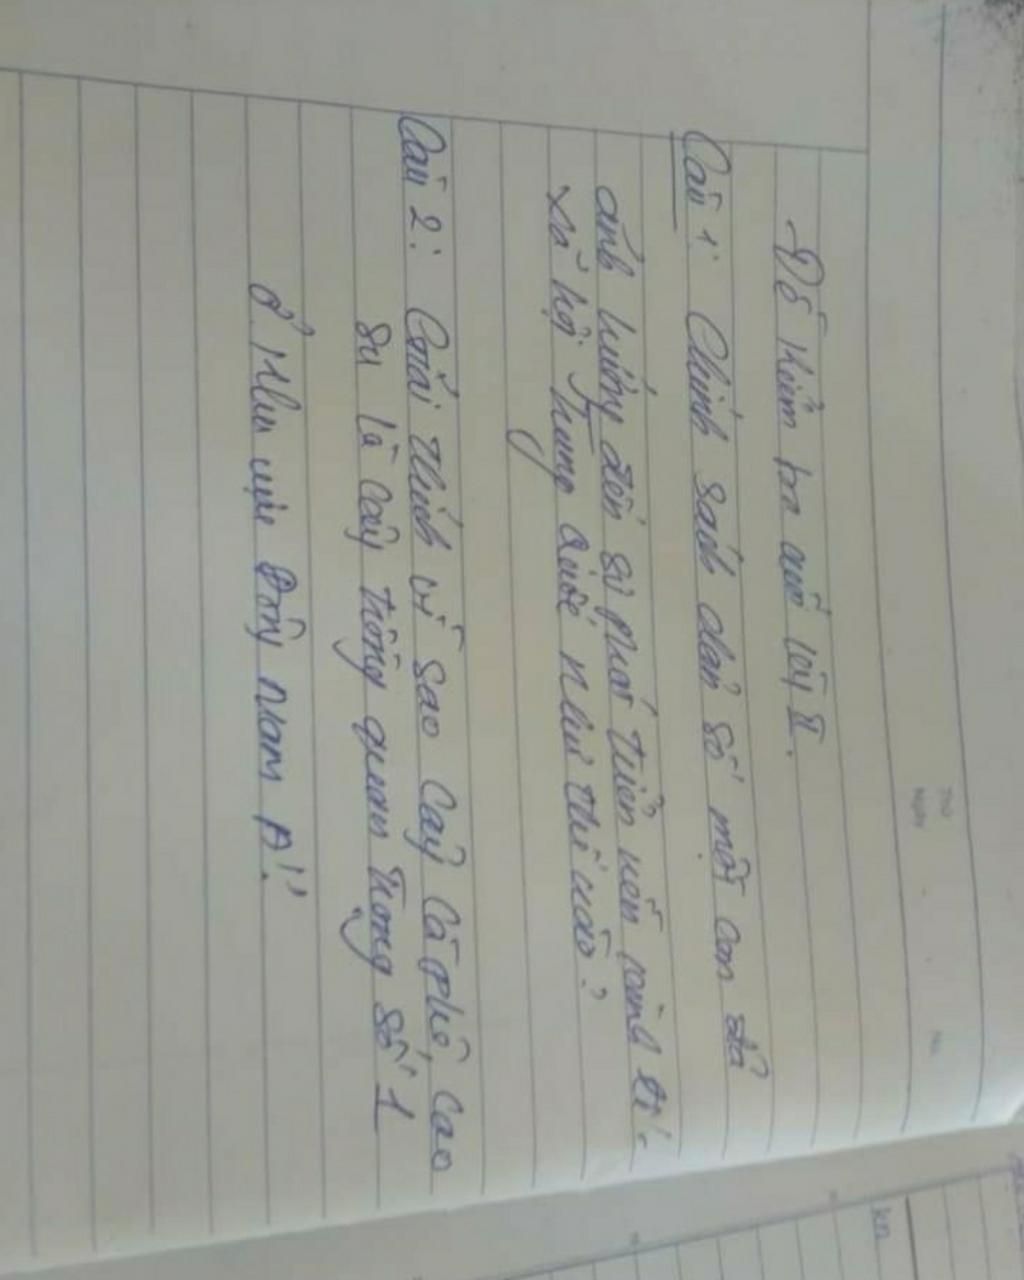 Đề kiểm tra cuối kỳ II.
Câu 1: Chính sách dân số một con đã
ảnh hưởng đến sự phát triển nền kinh tế -
xã hội Trung Quốc như thế nào?
Câu 2: Giải thích vì sao cây cà phê, cao
su là cây trồng quan trọng số 1
ở khu vực Đông Nam Á!
Thứ
Ngày
No.